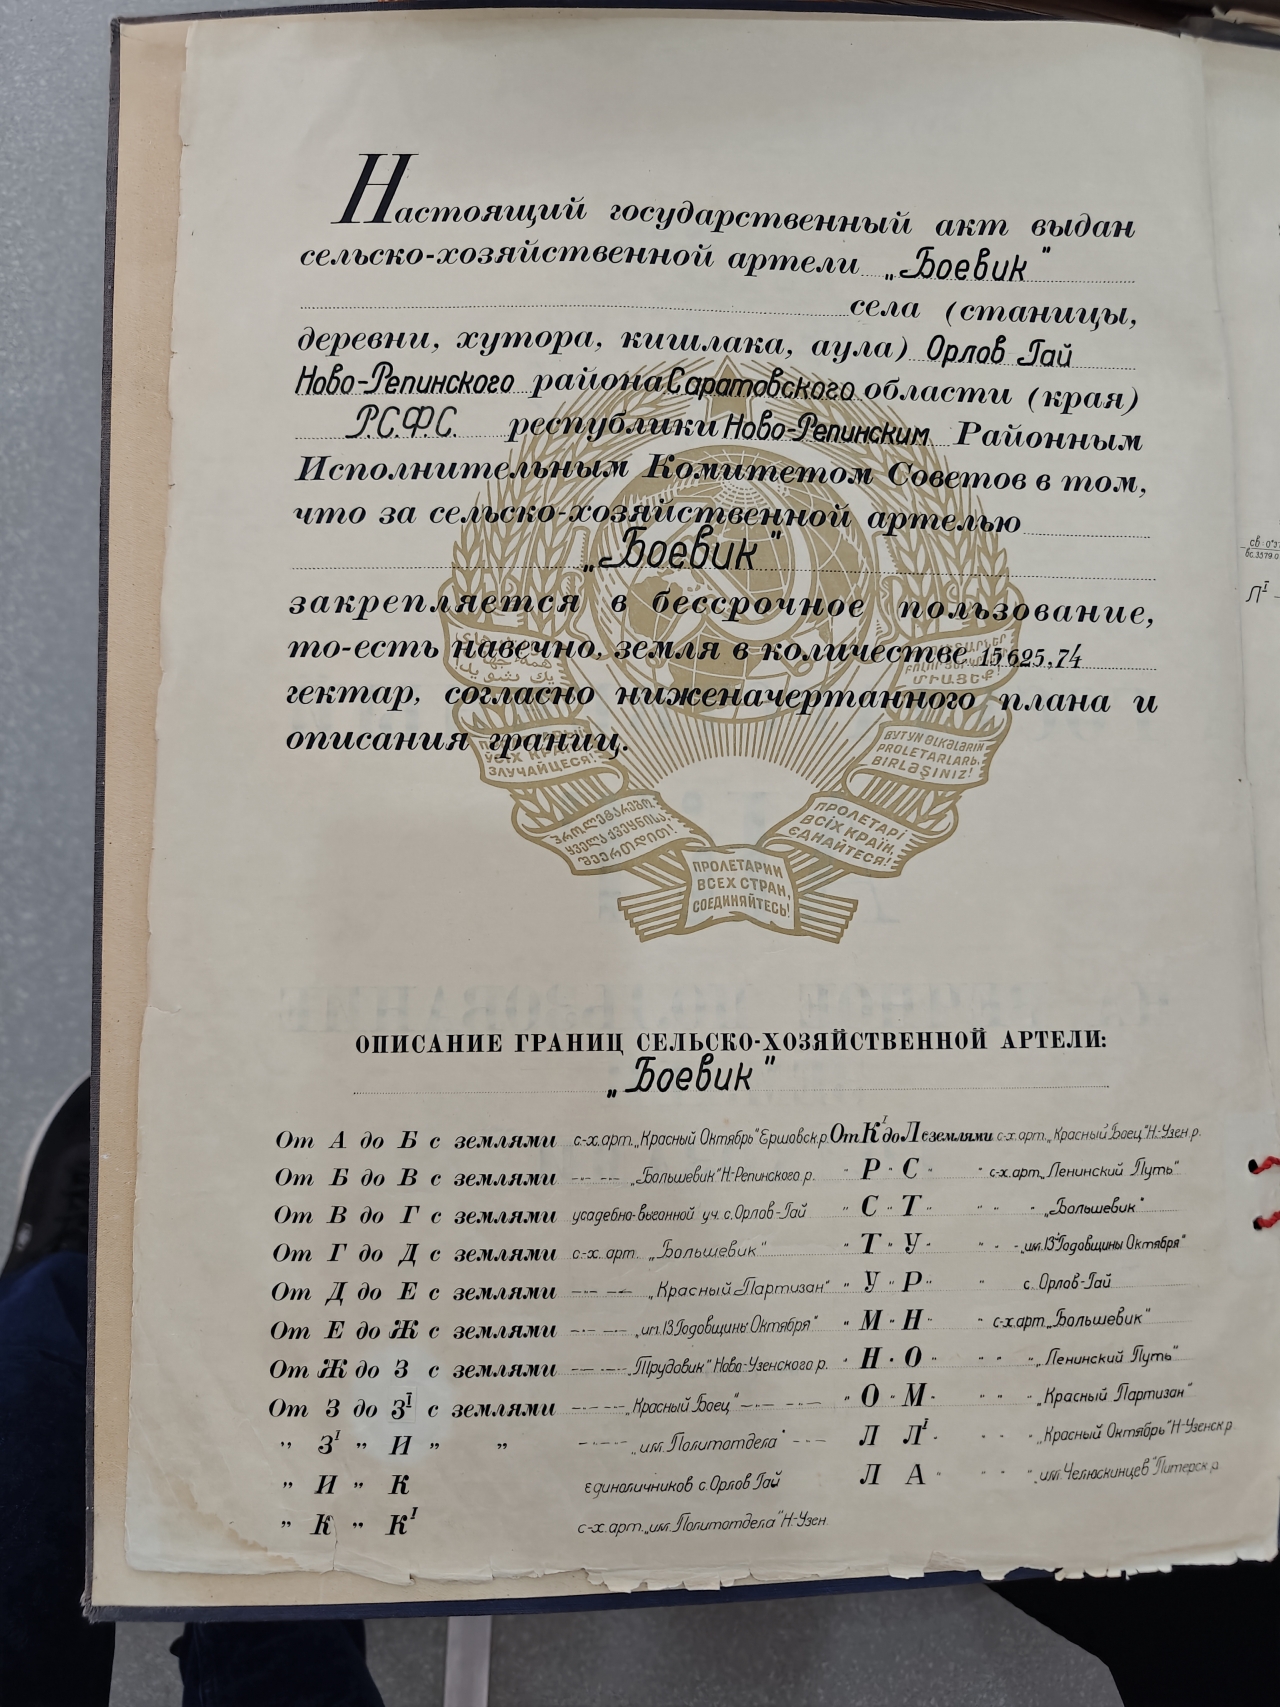 Настоящий государственный акт выдан
сельско-хозяйственной артели „Боевик"
села (станицы,
деревни, хутора, кишлака, аула) Орлов Гай
Ново-Репинского района Саратовского области (края)
Р.С.Ф.С. республики Ново-Репинским Районным
Исполнительным Комитетом Советов в том,
что за сельско-хозяйственной артелью
„Боевик"
закрепляется в бессрочное пользование,
то-есть навечно, земля в количестве 15625,74
гектар, согласно ниженачертанного плана и
описания границ.
ЗЛУЧАЙЦЕСЯ!
BYTYN ƏLKƏLƏRIN
PROLETARLARЬ,
BIRLƏŞINIZ!
ՊՐՈԼԵՏԱՐՆԵՐ
ԲՈԼՈՐ ԵՐԿՐՆԵՐԻ
ՄԻԱՑԵՔ!
პროლეტარებო
ყველა ქვეყნისა,
შეერთდით!
ПРОЛЕТАРІ
ВСІХ КРАЇН,
ЄДНАЙТЕСЯ!
ПРОЛЕТАРИИ
ВСЕХ СТРАН,
СОЕДИНЯЙТЕСЬ!
ОПИСАНИЕ ГРАНИЦ СЕЛЬСКО-ХОЗЯЙСТВЕННОЙ АРТЕЛИ:
„Боевик"
От А до Б с землями с-х. арт. „Красный Октябрь" Ершовск. р. От Кᴵ до Л с землями с-х. арт. „Красный Боец" Н-Узен р.
От Б до В с землями -·-- --- „Большевик" Н-Репинского р. " Р " С " " с-х. арт „Ленинский Путь"
От В до Г с землями усадебно-выгонной уч. с. Орлов-Гай " С " Т " " " „Большевик"
От Г до Д с землями с-х. арт. „Большевик" " Т " У " " " „им. 13 Годовщины Октября"
От Д до Е с землями -·-- --- „Красный Партизан" " У " Р " " с. Орлов-Гай
От Е до Ж с землями -·-- --- „им. 13 Годовщины Октября" " М " Н " " с-х. арт. „Большевик"
От Ж до З с землями -·-- --- „Трудовик" Ново-Узенского р. " Н " О " " " „Ленинский Путь"
От З до Зᴵ с землями -·-- --- „Красный Боец" -·-- --- " О " М " " " „Красный Партизан"
" Зᴵ " И " " -·-- --- „им. Политотдела" -·-- Л Лᴵ " " " „Красный Октябрь" Н-Узенск р
" И " К единоличников с. Орлов Гай Л А " " " „им. Челюскинцев" Питерск. р
" К " Кᴵ с-х. арт. „им. Политотдела" Н-Узен.
св. 0°3
Лᴵ